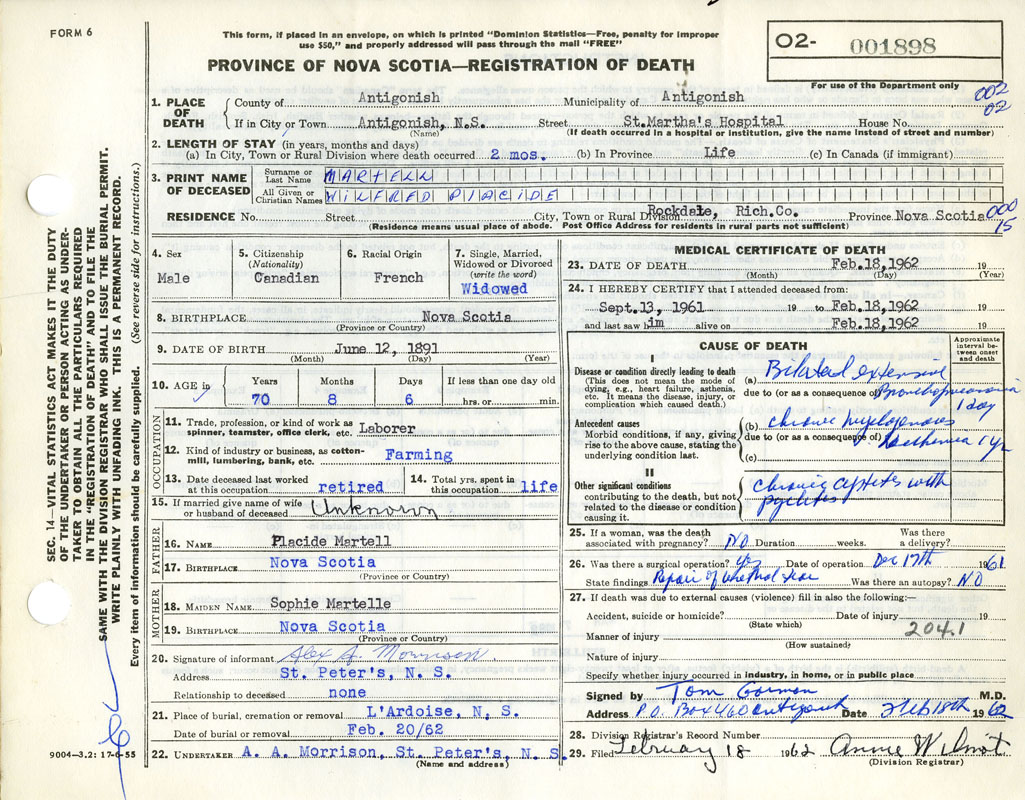 FORM 6
This form, if placed in an envelope, on which is printed "Dominion Statistics—Free, penalty for improper
use $50," and properly addressed will pass through the mail "FREE"
PROVINCE OF NOVA SCOTIA—REGISTRATION OF DEATH
O2- 001898
For use of the Department only
002
02
1. PLACE OF DEATH
County of Antigonish Municipality of Antigonish
If in City or Town Antigonish, N.S. Street St.Martha's Hospital House No.
(Name) (If death occurred in a hospital or institution, give the name instead of street and number)
2. LENGTH OF STAY (in years, months and days)
(a) In City, Town or Rural Division where death occurred 2 mos. (b) In Province Life (c) In Canada (if immigrant)
3. PRINT NAME OF DECEASED
Surname or Last Name MARTELL
All Given or Christian Names WILFRED PLACIDE
RESIDENCE No. Street City, Town or Rural Division Rockdale, Rich.Co. Province Nova Scotia
000
15
(Residence means usual place of abode. Post Office Address for residents in rural parts not sufficient)
4. Sex Male
5. Citizenship (Nationality) Canadian
6. Racial Origin French
7. Single, Married, Widowed or Divorced (write the word) Widowed
8. BIRTHPLACE Nova Scotia
(Province or Country)
9. DATE OF BIRTH June 12, 1891
(Month) (Day) (Year)
10. AGE in Years Months Days If less than one day old
70 8 6 hrs. or min.
OCCUPATION
11. Trade, profession, or kind of work as spinner, teamster, office clerk, etc. Laborer
12. Kind of industry or business, as cotton-mill, lumbering, bank, etc. Farming
13. Date deceased last worked at this occupation retired
14. Total yrs. spent in this occupation life
15. If married give name of wife or husband of deceased Unknown
FATHER
16. NAME Placide Martell
17. BIRTHPLACE Nova Scotia
(Province or Country)
MOTHER
18. MAIDEN NAME Sophie Martelle
19. BIRTHPLACE Nova Scotia
(Province or Country)
20. Signature of informant Alex A. Morrison
Address St. Peter's, N. S.
Relationship to deceased none
21. Place of burial, cremation or removal L'Ardoise, N. S.
Date of burial or removal Feb. 20/62
22. UNDERTAKER A. A. Morrison, St. Peter's, N. S.
(Name and address)
MEDICAL CERTIFICATE OF DEATH
23. DATE OF DEATH Feb.18,1962 19
(Month) (Day) (Year)
24. I HEREBY CERTIFY that I attended deceased from:
Sept.13, 1961 19 to Feb.18,1962 19
and last saw him alive on Feb.18,1962 19
CAUSE OF DEATH
Approximate interval between onset and death
I
Disease or condition directly leading to death
(This does not mean the mode of dying, e.g., heart failure, asthenia, etc. It means the disease, injury, or complication which caused death.)
(a) Bilateral extensive
due to (or as a consequence of) Bronchopneumonia
1 day
Antecedent causes
Morbid conditions, if any, giving rise to the above cause, stating the underlying condition last.
(b) chronic myelogenous
due to (or as a consequence of) Leukemia 1 yr
(c)
II
Other significant conditions
contributing to the death, but not related to the disease or condition causing it.
chronic cystitis with
pyelitis
25. If a woman, was the death associated with pregnancy? NO Duration weeks. Was there a delivery?
26. Was there a surgical operation? yes Date of operation Dec 17th 1961
State findings Repair of urethral tear Was there an autopsy? NO
27. If death was due to external causes (violence) fill in also the following:—
Accident, suicide or homicide? Date of injury 19
(State which)
2041
Manner of injury
(How sustained)
Nature of injury
Specify whether injury occurred in industry, in home, or in public place
Signed by Tom Gorman M.D.
Address P.O. Box 460 Antigonish Date Feb 18th 1962
28. Division Registrar's Record Number
29. Filed February 18 1962 Annie Wilmot
(Division Registrar)
SEC. 14—VITAL STATISTICS ACT MAKES IT THE DUTY
OF THE UNDERTAKER OR PERSON ACTING AS UNDER-
TAKER TO OBTAIN ALL THE PARTICULARS REQUIRED
IN THE "REGISTRATION OF DEATH" AND TO FILE THE
SAME WITH THE DIVISION REGISTRAR WHO SHALL ISSUE THE BURIAL PERMIT.
WRITE PLAINLY WITH UNFADING INK. THIS IS A PERMANENT RECORD.
Every item of information should be carefully supplied. (See reverse side for instructions.)
9004—3.2: 17-6-55